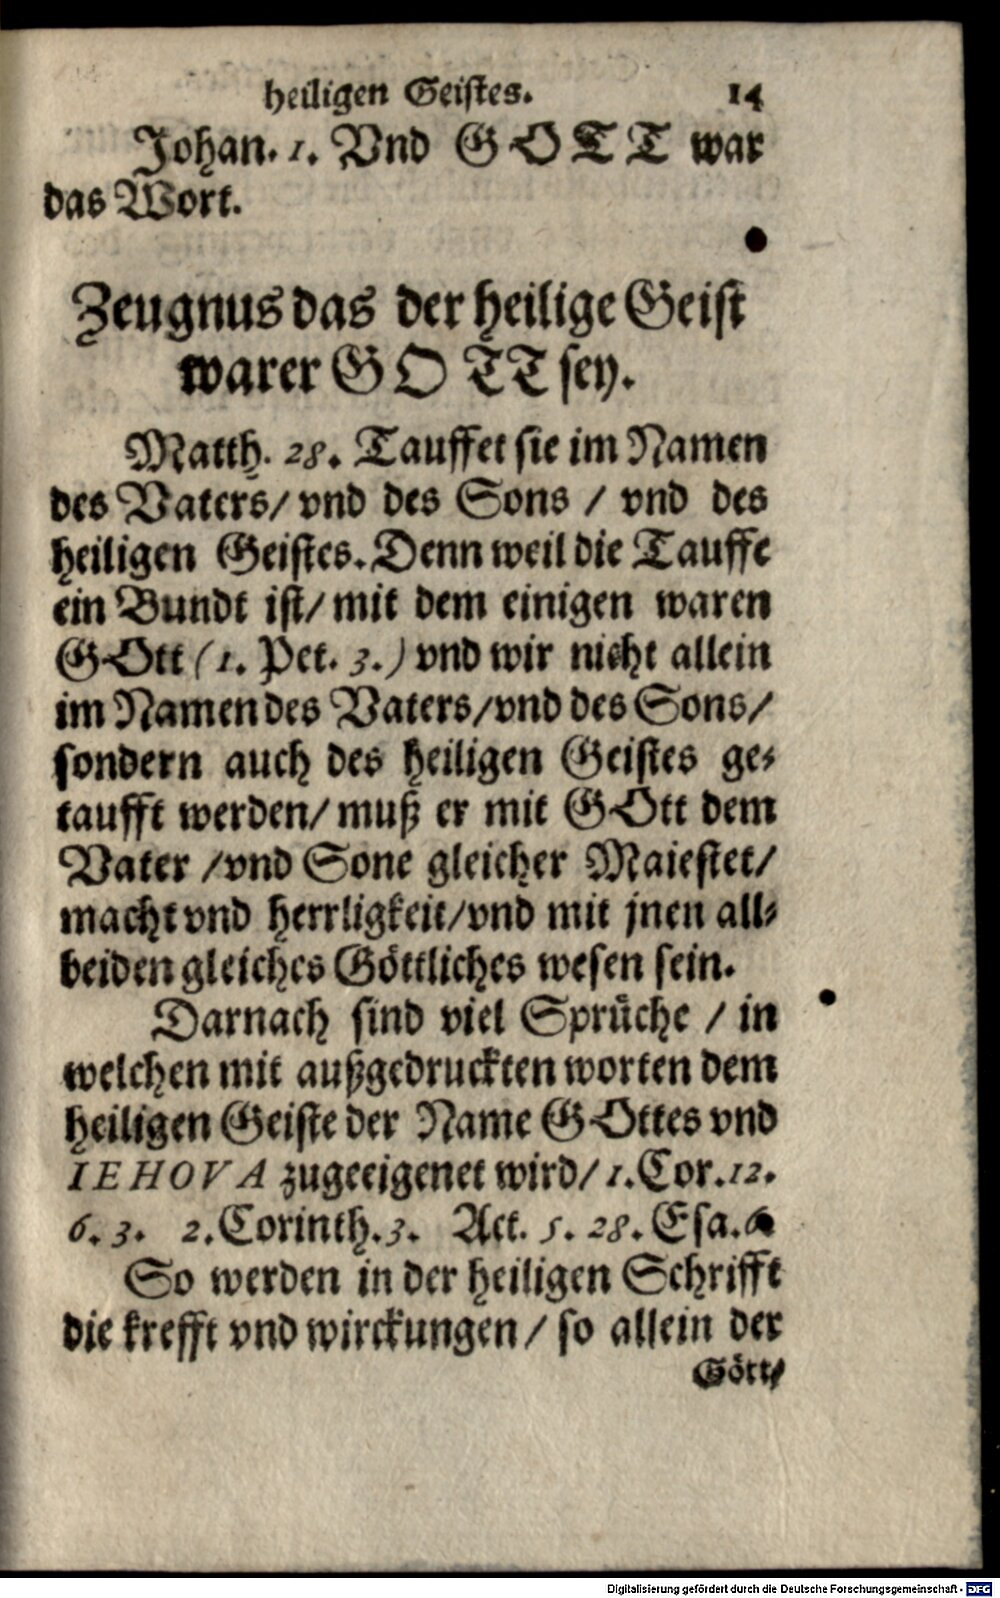 heiligen Geistes. 14
Johan. 1. Vnd GOTT war
das Wort.
Zeugnus das der heilige Geist
warer GOTT sey.
Matth. 28. Tauffet sie im Namen
des Vaters/ vnd des Sons / vnd des
heiligen Geistes. Denn weil die Tauffe
ein Bundt ist/ mit dem einigen waren
GOtt (1. Pet. 3.) vnd wir nicht allein
im Namen des Vaters/vnd des Sons/
sondern auch des heiligen Geistes ge-
taufft werden/ muß er mit GOtt dem
Vater /vnd Sone gleicher Maiestet/
macht vnd herrligkeit/vnd mit jnen all-
beiden gleiches Göttliches wesen sein.
Darnach sind viel Sprüche / in
welchen mit außgedruckten worten dem
heiligen Geiste der Name GOttes vnd
IEHOVA zugeeigenet wird/ 1. Cor. 12.
6. 3. 2. Corinth. 3. Act. 5. 28. Esa. 6
So werden in der heiligen Schrifft
die krefft vnd wirckungen / so allein der
Gött-
Digitalisierung gefördert durch die Deutsche Forschungsgemeinschaft - DFG